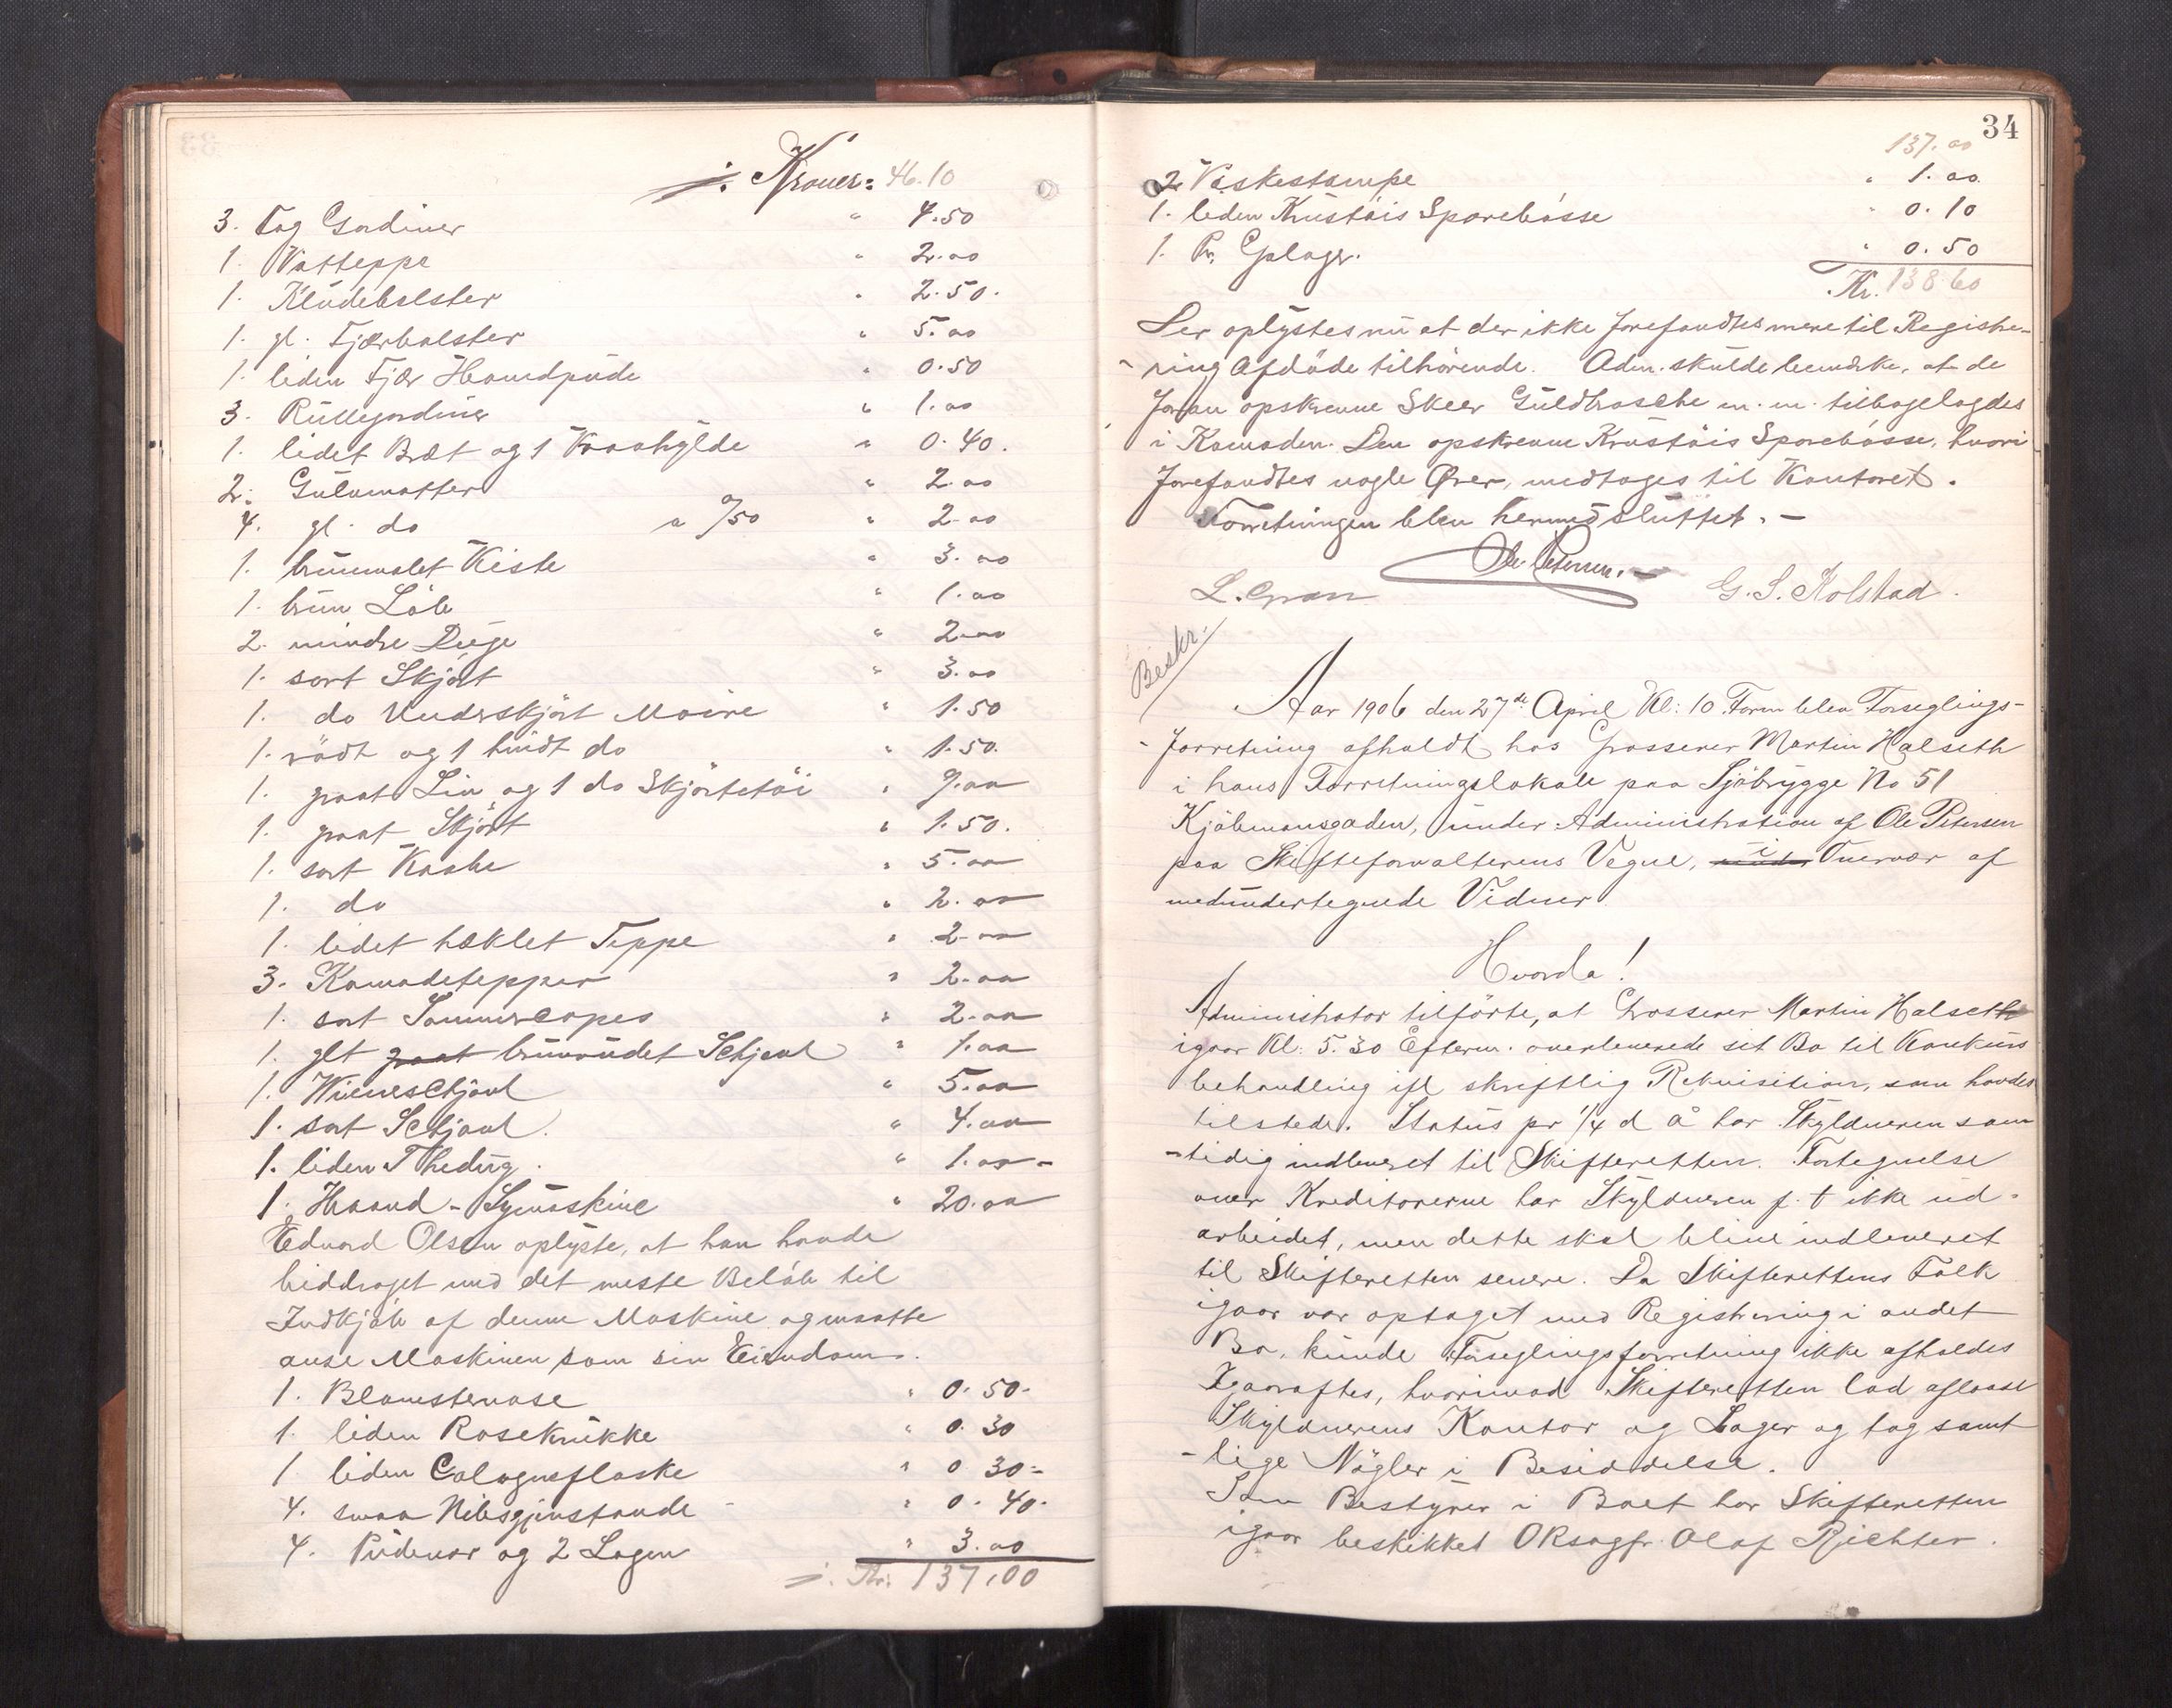 Kroner: 46.10
3. Fag Gardiner " 4.50
1. Vatteppe " 2.00
1. Kludebolster " 2.50.
1. gl. Fjærbolster " 5.00
1. liden Fjær Hovedpude " 0.50
3. Rullegardiner " 1.00
1. lidet Bræt og 1 Kraahylde " 0.40.
2. Gulvmatter " 2.00
4. gl. do a 0/50 " 2.00
1. brunmalet Kiste " 3.00
1. brun Löb " 1.00
2. mindre Duge " 2.00
1. sort Skjört " 3.00
1. do Underskjört Moire " 1.50
1. rödt og 1 hvidt do " 1.50.
1. graat Liv og 1 do Skjörtetöi " 9.00
1. graat Skjört " 1.50.
1. sort Kaabe " 5.00
1. do " 2.00
1. lidet hæklet Teppe " 2.00
3. Komodetepper " 2.00
1. sort Sommercapes " 2.00
1. glt graat brunrudet Schjavl " 1.00
1. Wienerschjavl " 5.00
1. sort Schjavl. " 4.00
1. liden Thedug. " 1.00
1. Haand-Symaskine " 20.00
Edvard Olsen oplyste, at han havde
biddraget med det meste Belöb til
Indkjöb af denne Maskine og maatte
anse Maskinen som sin Eiendom.
1. Blomstervase " 0.50
1. liden Rosekrukke " 0.30
1 liden Colognesflaske " 0.30
4. smaa Nibsgjenstande " 0.40
4. Pudevar og 2 Lagen " 3.00
Kr. 137.00
34
137.00
2 Vaskestampe " 1.00
1. liden Krustöis Sparebösse " 0.10
1. Pr. Galager. " 0.50
Kr. 138.60
Der oplystes nu at der ikke forefandtes mere til Registre-
ring Afdöde tilhörende. Adm. skulde bemærke, at de
foran opskrevne Skeer Guldbrosche m.m. tilbagelagdes
i Komoden. Den opskrevne Krustöis Sparebösse, hvori
forefandtes nogle Örer, medtages til Kontoret.
Forretningen blev hermed sluttet. -
Ole Petersen.
L. Gram G. S. Kolstad.
Beskr.
Aar 1906 den 27de April Kl: 10 Form blev Forseglings-
forretning afholdt hos Grosserer Martin Halseth
i hans Forretningslokale paa Sjöbrygge No 51
Kjöbmansgaden, under Administration af Ole Petersen
paa Skifteforvalterens Vegne, under i Overvær af
medundertegnede Vidner
Hvorda!
Administrator tilförte, at Grosserer Martin Halseth
igaar Kl. 5.30 Efterm. overleverede sit Bo til Konkurs
behandling ifl skriftlig Rekvisition, som havdes
tilstede. Status pr 1/4 d å har Skyldneren sam-
tidig indleveret til Skifteretten. Fortegnelse
over Kreditorerne har Skyldneren f. t ikke ud-
arbeidet, men dette skal blive indleveret
til Skifteretten senere. Da Skifterettens Folk
igaar var optaget med Registrering i andet
Bo, kunde Forseglingsforretning ikke afholdes
Igaaraftes, hvorimod Skifteretten lod aflaase
Skyldnerens Kontor og Lager og tog samt-
lige Nögler i Besiddelse.
Som Bestyrer i Boet har Skifteretten
igaar beskikket ORsagfr. Olaf Richter.